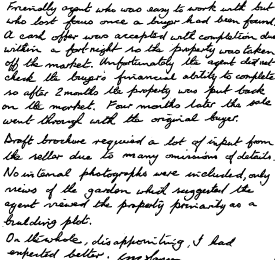 Friendly agent who was easy to work with but
who lost focus once a buyer had been found
A cash offer was accepted with completion due
within a fortnight so the property was taken
off the market. Unfortunately the agent did not
check the buyer's financial ability to complete
so after 2 months the property was put back
on the market. Four months later the sale
went through with the original buyer.
Draft brochure required a lot of input from
the seller due to many omissions of details.
No internal photographs were included, only
views of the garden which suggested the
agent viewed the property primarily as a
building plot.
On the whole, disappointing, I had
expected better.